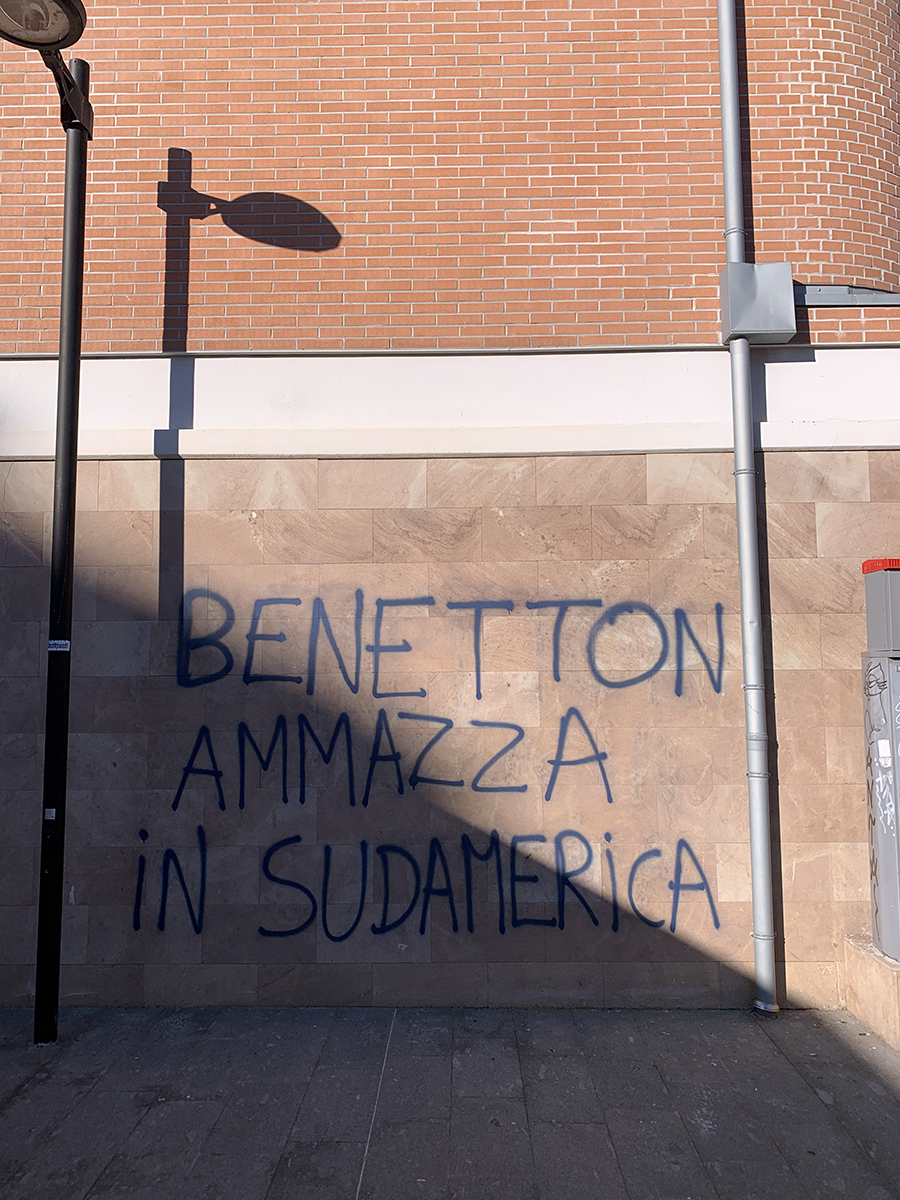 BENETTON
AMMAZZA
iN SUDAMERiCA